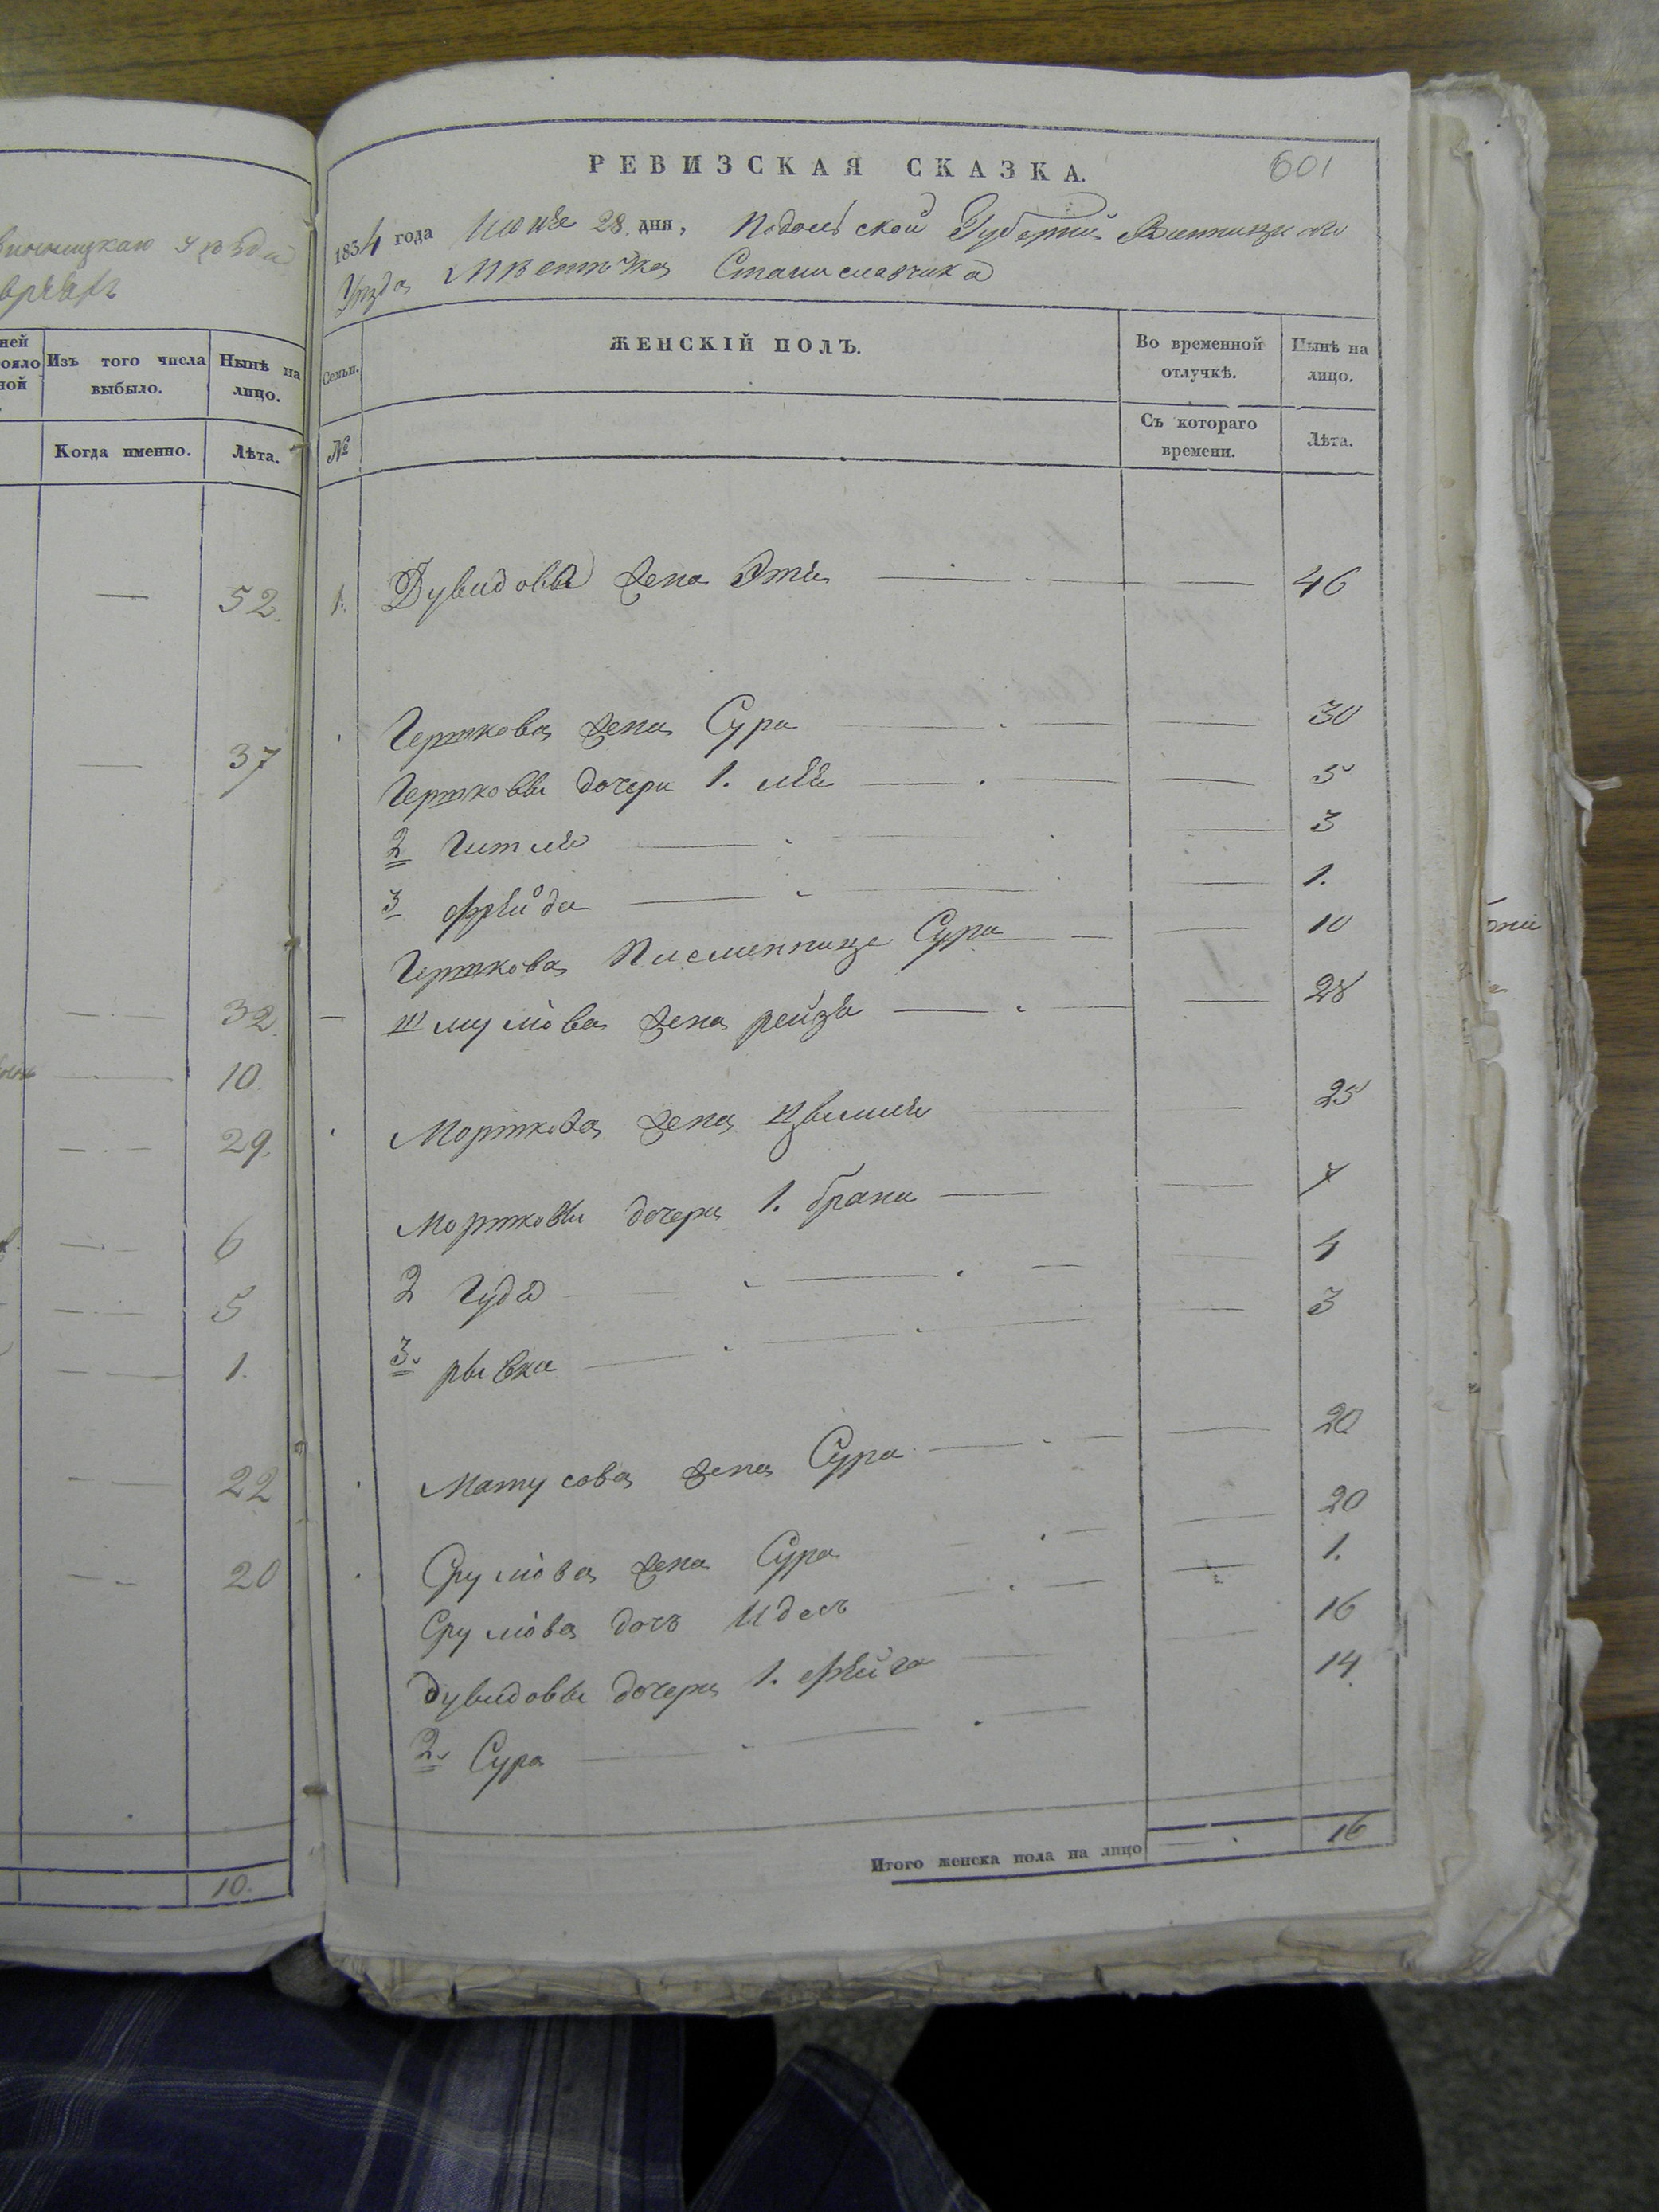 Винницкаго уѣзда
ней
ояло
ной
Изъ того числа выбыло.
Нынѣ на лицо.
Когда именно.
Лѣта.
52.
37
32.
10.
29.
6
5
1.
22
20
10.
РЕВИЗСКАЯ СКАЗКА.
601
1834 года Июня 28 дня, Подольской Губерніи Винницкаго
Уезда Мѣстечка Станиславчика
Семьи.
ЖЕНСКІЙ ПОЛЪ.
Во временной отлучкѣ.
Нынѣ на лицо.
№
Съ котораго времени.
Лѣта.
1. Дувидова жена Этя 46
Гершкова жена Сура 30
Гершковы дочери 1. Лея 5
2 Гитля 3
3 Фрейда 1.
Гершкова Сура 10
Шмулова жена рейзя 28
Моршкова жена 25
Моршковы дочери 1. брана 7
2 Гудя 4
3. рывка 3
Матусова жена Сура 20
Срулова жена Сура 20
Срулова дочъ Идесъ 1.
Дувидовы дочери 1. Фейга 16
2. Сура 14
Итого женска пола на лицо 16